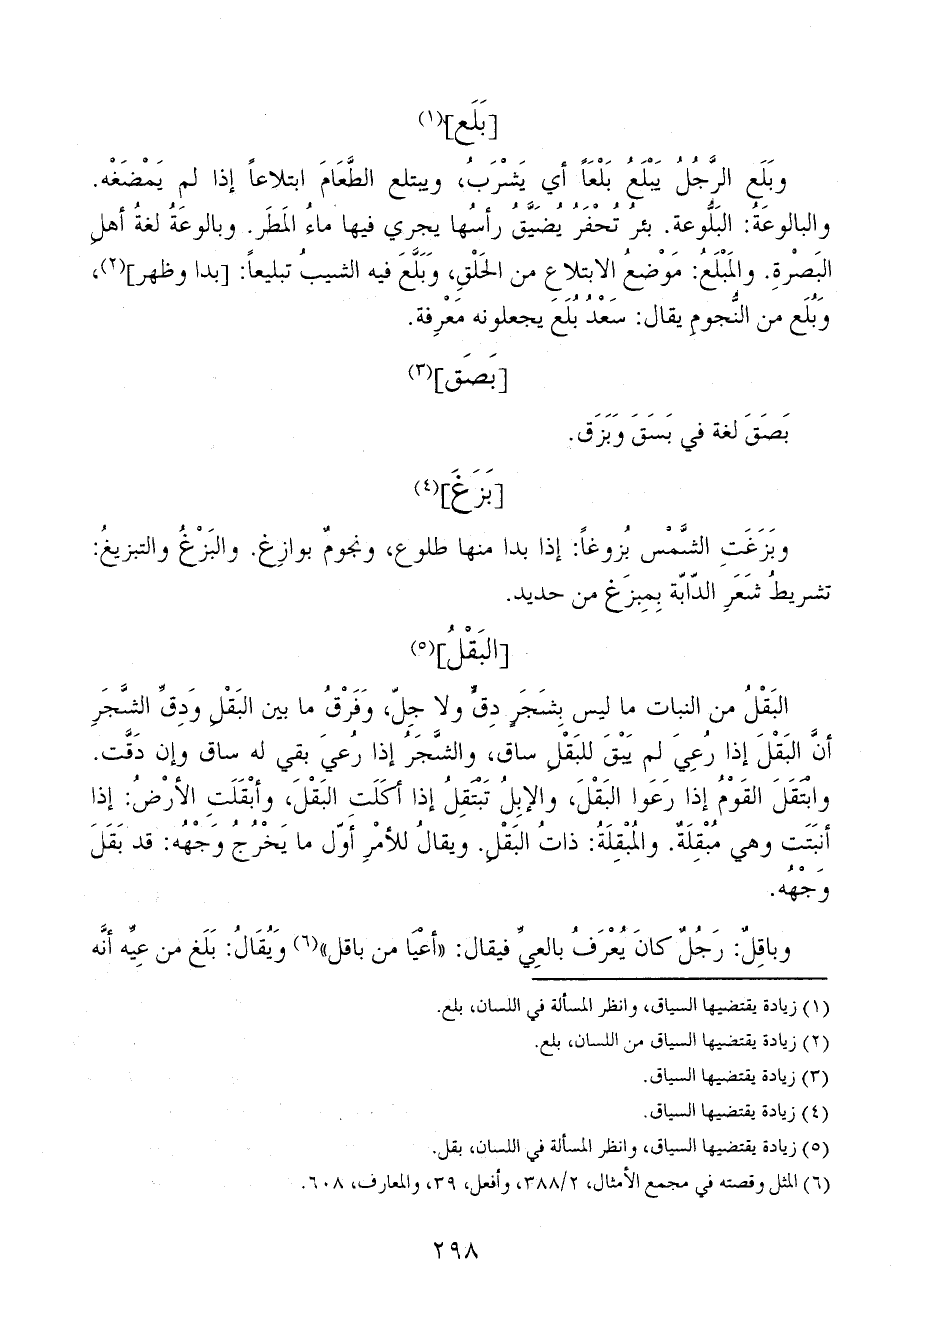 [بَلَع](١)
وبَلَع الرَّجُلُ يَبْلَعُ بَلْعَاً أي يَشْرَبُ، ويبتلع الطَّعَامَ ابتلاعاً إذا لم يَمْضَغْه.
والبالوعَةُ: البَلُّوعة. بئرُ تُحْفَر يُضَيَّقُ رأسُها يجري فيها ماءُ المَطَر. وبالوعَةُ لغةُ أهلِ
البَصْرةِ. والمَبْلَعُ: مَوْضعُ الابتلاع من الحَلْقِ، وَبَلَّعَ فيه الشيبُ تبليعاً: [بدا وظهر](٢)،
وَبُلَع من النُّجومِ يقال: سَعْدُ بُلَعَ يجعلونه مَعْرِفة.
[بَصَق](٣)
بَصَقَ لغة في بَسَقَ وَبَزَق.
[بَزَغَ](٤)
وبَزَغَتِ الشَّمْس بُزوغاً: إذا بدا منها طلوع، ونجومٌ بوازِغ. والبَزْغُ والتبزيغُ:
تشريطُ شَعَرِ الدّابّة بِمِبزَغ من حديد.
[البَقْلُ](٥)
البَقْلُ من النبات ما ليس بِشَجَرٍ دِقٍّ ولا جِلّ، وَفَرْقُ ما بين البَقْلِ وَدِقِّ الشَّجَرِ
أنَّ البَقْلَ إذا رُعِيَ لم يَبْقَ للبَقْلِ ساق، والشَّجَرُ إذا رُعيَ بقي له ساق وإن دَقَّت.
وابْتَقَلَ القَوْمُ إذا رَعَوا البَقْلَ، والإبِلُ تَبْتَقِلُ إذا أكَلَتِ البَقْلَ، وأبْقَلَتِ الأرْضُ: إذا
أنبَتَت وهي مُبْقِلَةٌ. والمُبْقِلَةُ: ذاتُ البَقْلِ. ويقالُ للأمْرِ أوّل ما يَخْرُجُ وَجهُه: قد بَقَلَ
وَجْهُه.
وباقِلٌ: رَجُلٌ كانَ يُعْرَفُ بالعِيِّ فيقال: «أعْيَا من باقل»(٦) وَيُقَالُ: بَلَغ من عِيِّه أنَّه
(١) زيادة يقتضيها السياق، وانظر المسألة في اللسان، بلع.
(٢) زيادة يقتضيها السياق من اللسان، بلع.
(٣) زيادة يقتضيها السياق.
(٤) زيادة يقتضيها السياق.
(٥) زيادة يقتضيها السياق، وانظر المسألة في اللسان، بقل.
(٦) المثل وقصته في مجمع الأمثال، ٣٨٨/٢، وأفعل، ٣٩، والمعارف، ٦٠٨.
٢٩٨